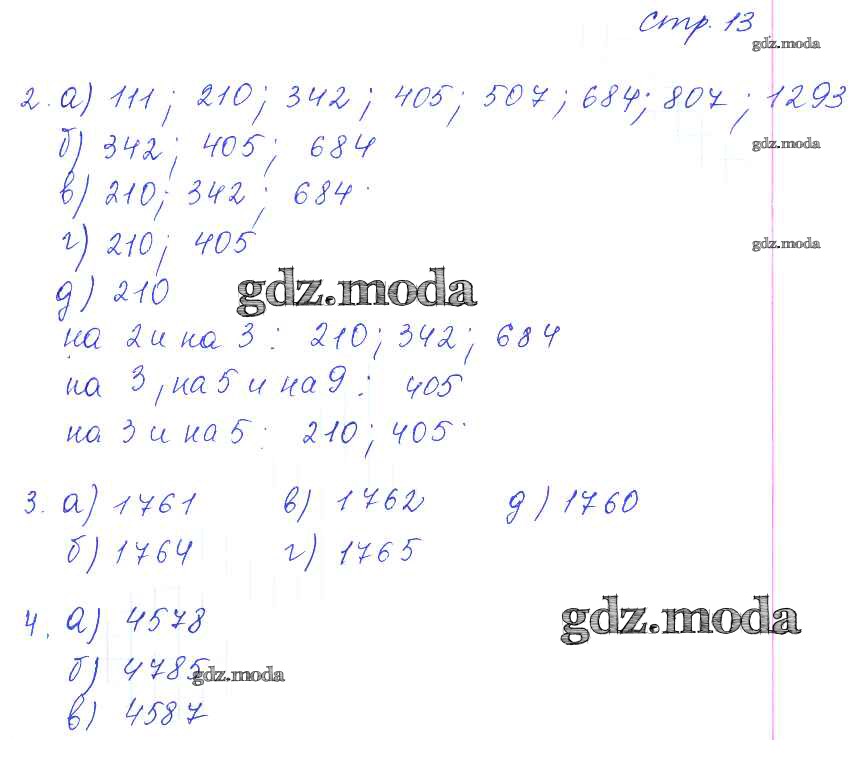 стр. 13
gdz.moda
2. а) 111; 210; 342; 405; 507; 684; 807; 1293
б) 342; 405; 684
gdz.moda
в) 210; 342; 684
г) 210; 405
gdz.moda
д) 210
gdz.moda
на 2 и на 3: 210; 342; 684
на 3, на 5 и на 9: 405
на 3 и на 5: 210; 405
3. а) 1761 в) 1762 д) 1760
б) 1764 г) 1765
4. а) 4578
gdz.moda
б) 4785
gdz.moda
в) 4587